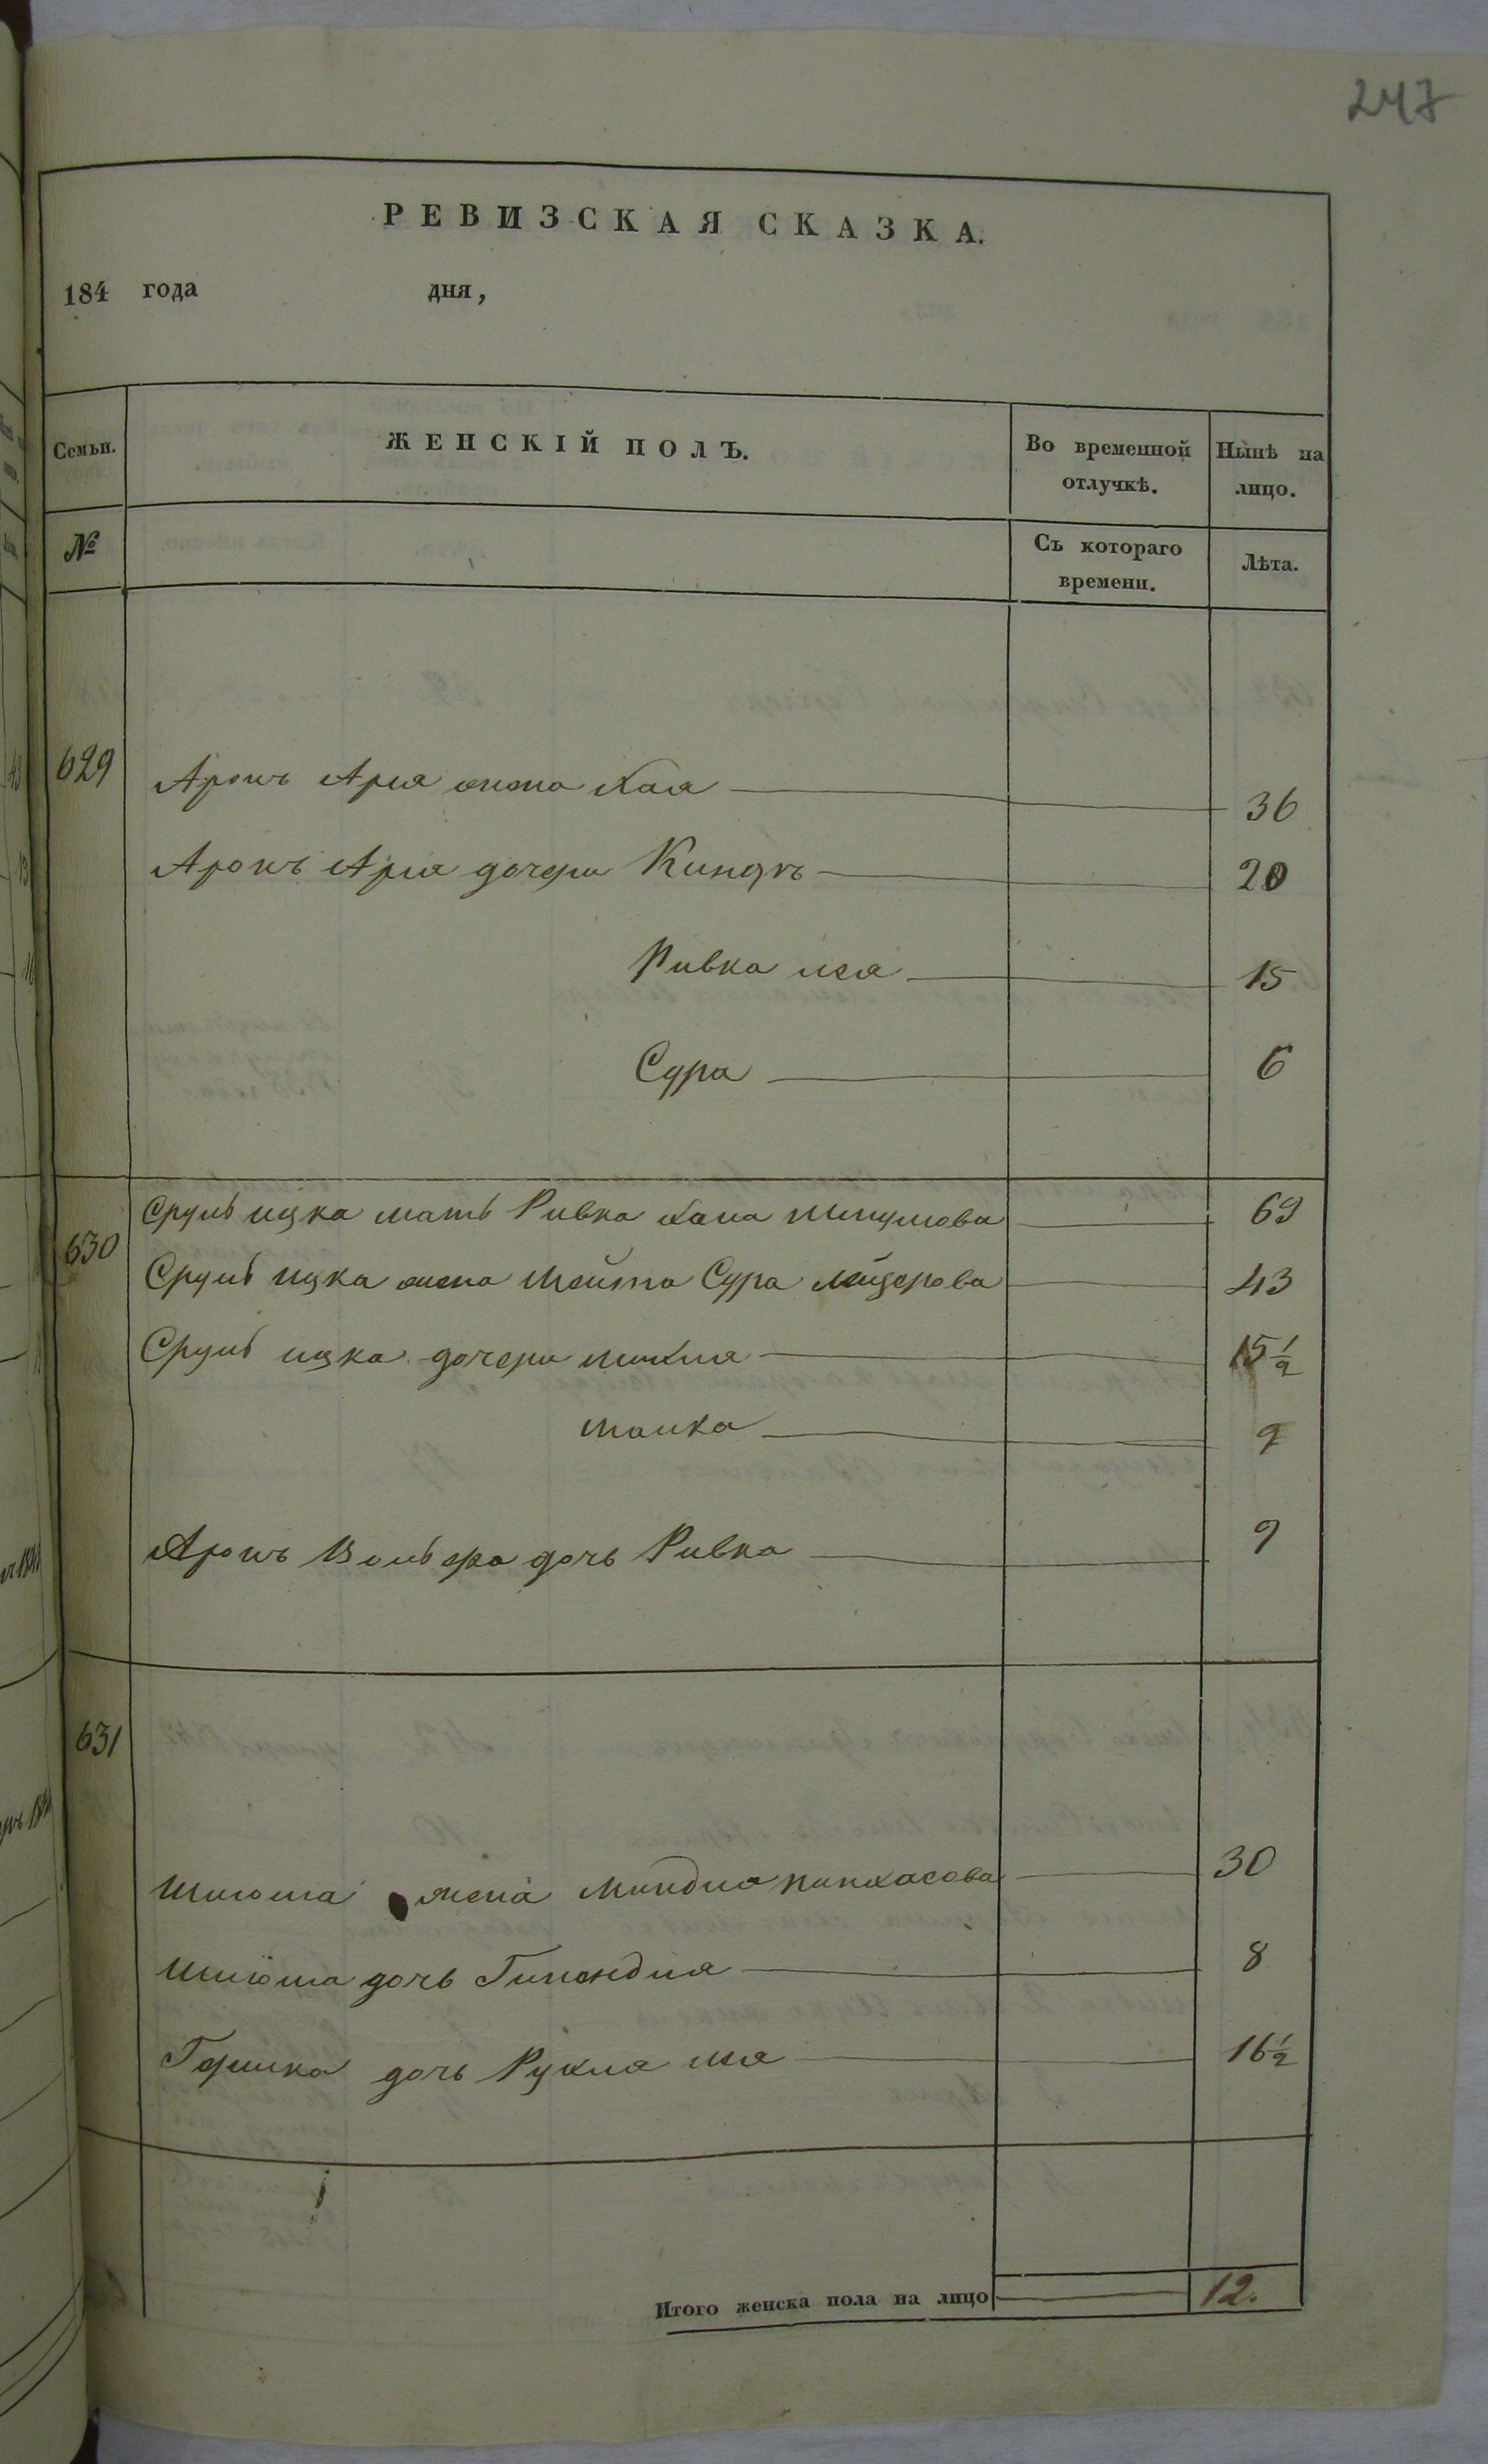 247
РЕВИЗСКАЯ СКАЗКА.
184 года дня,
Семьи. ЖЕНСКІЙ ПОЛЪ. Во временной отлучкѣ. Нынѣ на лицо.
№ Съ котораго времени. Лѣта.
629 Аронъ Арія жена Хая 36
Аронъ Арія дочери Киндъ 20
Ривка лея 15
Сура 6
Сруль ицка мать Ривка хана Шмулова 69
630 Сруль ицка жена Шейта Сура лейзерова 43
Сруль ицка дочери 15½
малка 9
Аронъ Вольфа дочь Ривка 9
631
Шлиома жена Миндля пинхасова 30
Шлиома дочь 8
Гершка дочь Рухля лея 16½
Итого женска пола на лицо 12.